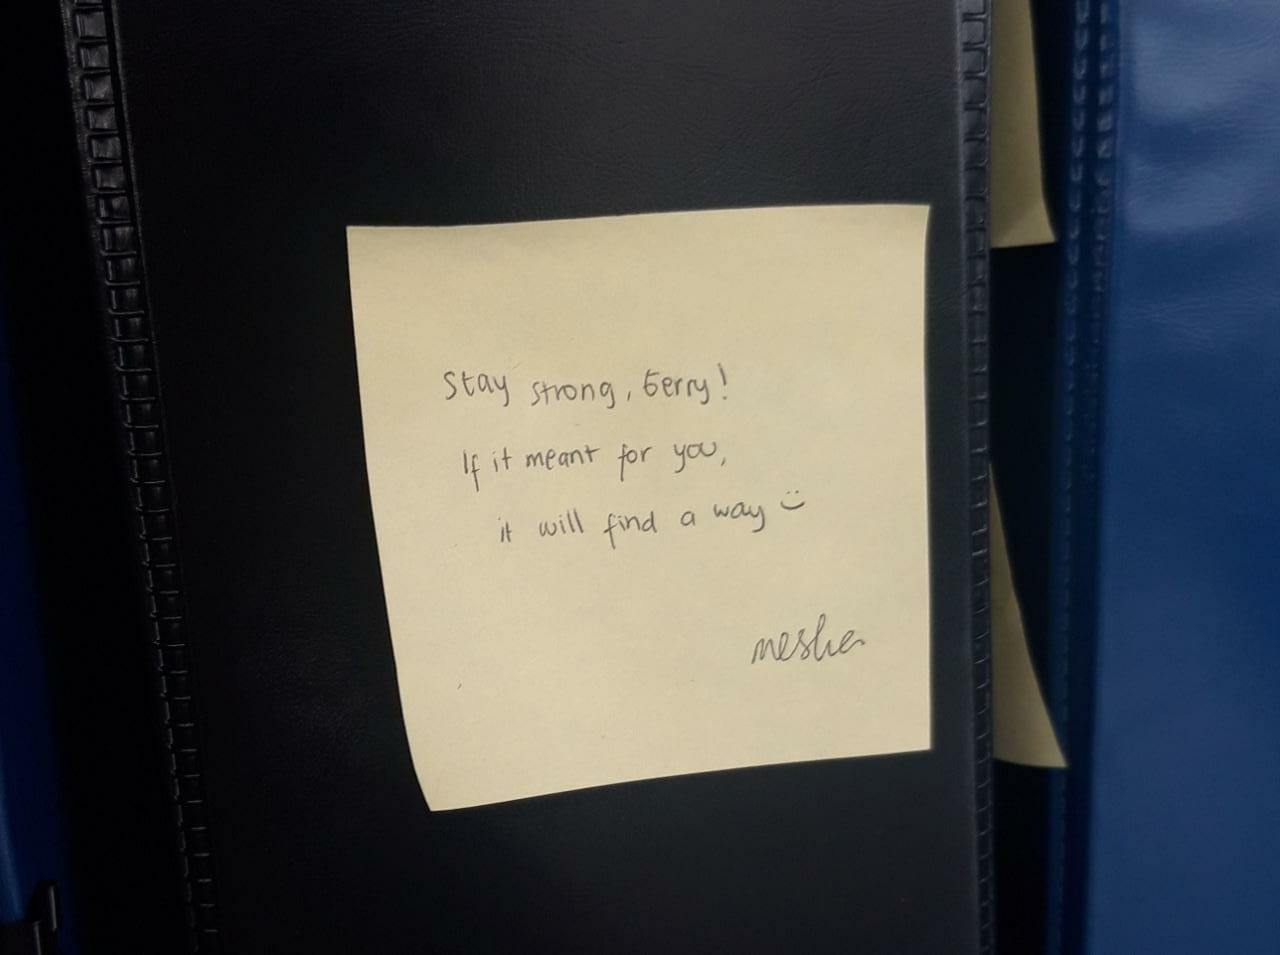 Stay strong, Gerry!
If it meant for you,
it will find a way :)